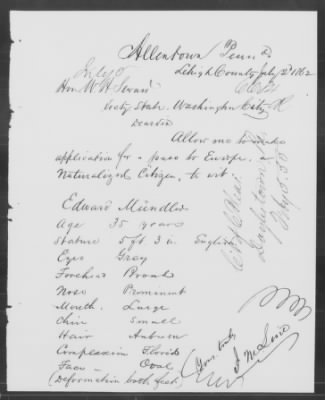 Allentown Penna
Lehigh County July 2d 1862
Hon. W. H. Seward
Secty State. Washington City
Dear Sir
Allow me to make
application for a pass to Europe.
Naturalized Citizen, to wit:
Edward Mündler
Age 35 years
Stature 5 ft. 3 in English
Eyes Gray
Forehead Broad
Nose Prominent
Mouth. Large
Chin Small
Hair Auburn
Complexion Florid
Face Oval
(Deformation both feet)
Yours truly